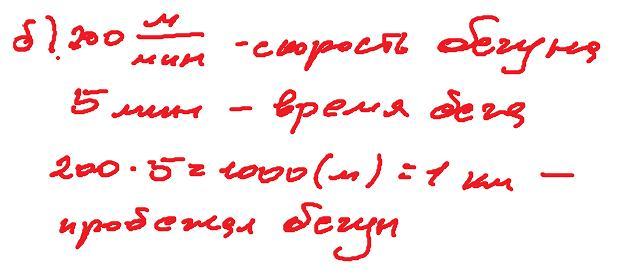 б) 200 м/мин - скорость бегуна
5 мин - время бега
200 · 5 = 1000 (м) = 1 км —
пробежал бегун